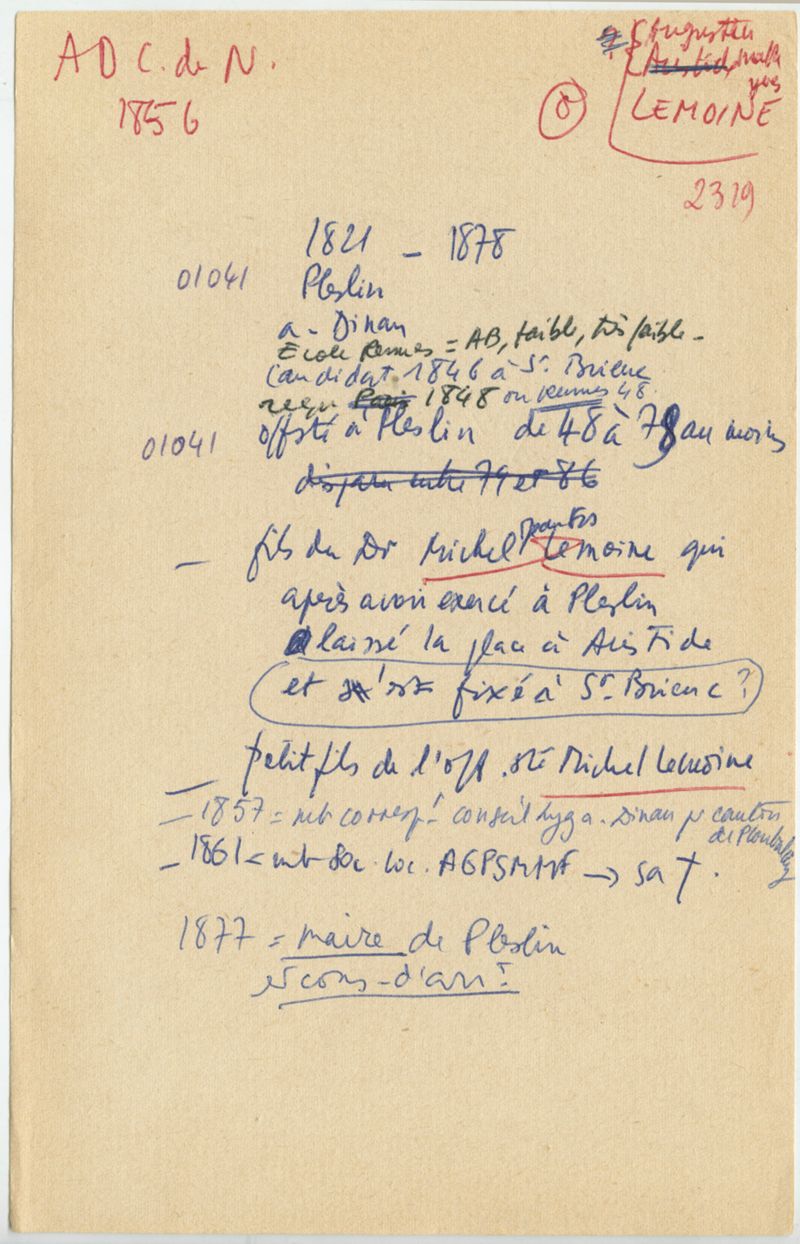 A D C. de N.
1856
Augustin
Aristide
LEMOINE
2319
1821 – 1878
01041 Pleslin
a - Dinan
Ecole Rennes = AB, faible, très faible -
Candidat 1846 à St Brieuc
reçu Paris 1848 ou Rennes 48
01041 offsté à Pleslin de 48 à 78 au moins
disparu entre 79 et 86
– fils du Dr Michel Lemoine qui
après avoir exercé à Pleslin
a laissé la place à Aristide
et s'est fixé à St Brieuc ?
– petit fils de l'off. sté Michel Lemoine
– 1857 = mb corresp.t conseil hyg a. Dinan pr canton
de Ploubalay
– 1861 = mb Soc. loc. AGPSMMF → sa †.
1877 = maire de Pleslin
et cons - d'arrt